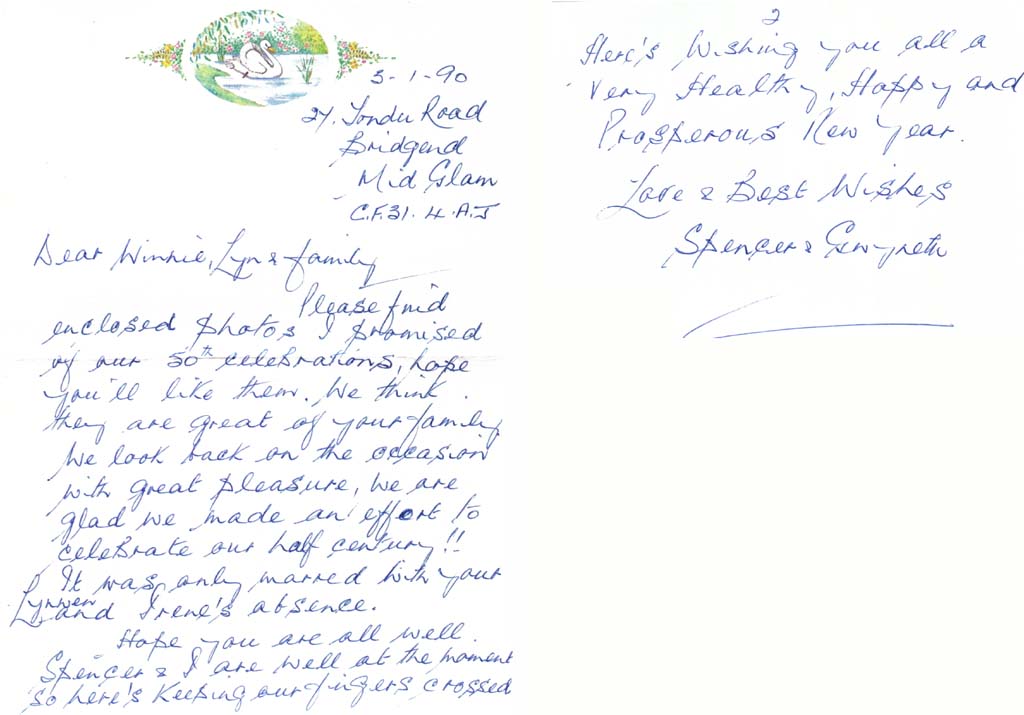 3-1-90
27, Tondu Road
Bridgend
Mid Glam
C.F.31. 4.A.J
Dear Winnie, Lyn & family
Please find
enclosed photos I promised
of our 50th celebrations, hope
you'll like them. We think
they are great of your family
We look back on the occasion
with great pleasure, we are
glad we made an effort to
celebrate our half century!!
It was only marred with your
Lynwen and Irene's absence.
Hope you are all well.
Spencer & I are well at the moment
so here's keeping our fingers crossed
2
Here's Wishing you all a
Very Healthy, Happy and
Prosperous New Year.
Love & Best Wishes
Spencer & Gwyneth